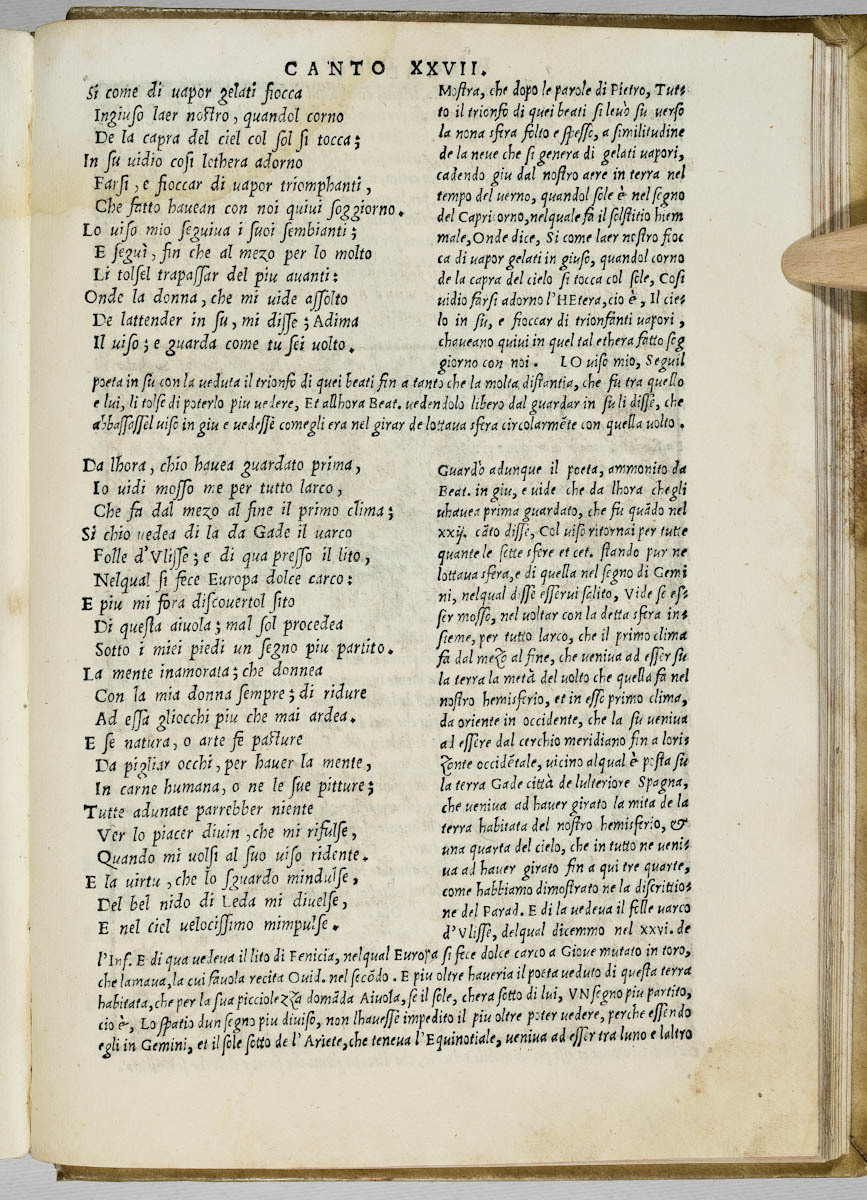 CANTO XXVII.
Si come di uapor gelati fiocca
Ingiuso laer nostro, quandol corno
De la capra del ciel col sol si tocca;
In su uidio cosi lethera adorno
Farsi, e fioccar di uapor triomphanti,
Che fatto hauean con noi quiui soggiorno.
Lo uiso mio seguiua i suoi sembianti;
E seguì, fin che al mezo per lo molto
Li tolsel trapassar del piu auanti:
Onde la donna, che mi uide assolto
De lattender in su, mi disse; Adima
Il uiso; e guarda come tu sei uolto.
Mostra, che dopo le parole di Pietro, Tut-
to il trionfo di quei beati si leuò su uerso
la nona sfera folto e spesso, a similitudine
de la neue che si genera di gelati uapori,
cadendo giu dal nostro aere in terra nel
tempo del uerno, quandol sole è nel segno
del Capricorno, nelquale fa il solstitio hiem
male, Onde dice, Si come laer nostro fioc
ca di uapor gelati in giuso, quandol corno
de la capra del cielo si tocca col sole, Cosi
uidio farsi adorno l'HEtera, cio è, Il cie-
lo in su, e fioccar di trionfanti uapori,
chaueano quiui in quel tal ethera fatto seg
giorno con noi. LO uiso mio, Seguil
poeta in su con la ueduta il trionfo di quei beati fin a tanto che la molta distantia, che fu tra quello
e lui, li tolse di poterlo piu uedere, Et allhora Beat. uedendolo libero dal guardar in su li disse, che
abbassassel uiso in giu e uedesse comegli era nel girar de lottaua sfera circolarmẽte con quella uolto.
Da lhora, chio hauea guardato prima,
Io uidi mosso me per tutto larco,
Che fa dal mezo al fine il primo clima;
Si chio uedea di la da Gade il uarco
Folle d'Vlisse; e di qua presso il lito,
Nelqual si fece Europa dolce carco:
E piu mi fora discouertol sito
Di questa aiuola; mal sol procedea
Sotto i miei piedi un segno piu partito.
La mente inamorata; che donnea
Con la mia donna sempre; di ridure
Ad essa gliocchi piu che mai ardea.
E se natura, o arte fe pasture
Da pigliar occhi, per hauer la mente,
In carne humana, o ne le sue pitture;
Tutte adunate parrebber niente
Ver lo piacer diuin, che mi rifulse,
Quando mi uolsi al suo uiso ridente.
E la uirtu, che lo sguardo mindulse,
Del bel nido di Leda mi diuelse,
E nel ciel uelocissimo mimpulse.
Guardò adunque il poeta, ammonito da
Beat. in giu, e uide che da lhora chegli
uhauea prima guardato, che fu quãdo nel
xxij. cãto disse, Col uiso ritornai per tutte
quante le sette sfere et cet. stando pur ne
lottaua sfera, e di quella nel segno di Gemi
ni, nelqual disse esserui salito, Vide se es-
ser mosso, nel uoltar con la detta sfera in-
sieme, per tutto larco, che il primo clima
fa dal mezo al fine, che ueniua ad esser su
la terra la metà del uolto che quella fa nel
nostro hemisferio, et in esso primo clima,
da oriente in occidente, che la su ueniua
ad essere dal cerchio meridiano fin a lori-
zonte occidẽtale, uicino alqual è posta su
la terra Gade città de lulteriore Spagna,
che ueniua ad hauer girato la mita de la
terra habitata del nostro hemisferio, &
una quarta del cielo, che in tutto ne ueni-
ua ad hauer girato fin a qui tre quarte,
come habbiamo dimostrato ne la discrittio-
ne del Parad. E di la uedeua il folle uarco
d'Vlisse, delqual dicemmo nel xxvi. de
l'Inf. E di qua uedeua il lito di Fenicia, nelqual Europa si fece dolce carco a Gioue mutato in toro,
che lamaua, la cui fauola recita Ouid. nel secõdo. E piu oltre haueria il poeta ueduto di questa terra
habitata, che per la sua picciolezza domãda Aiuola, se il sole, chera sotto di lui, VN segno piu partito,
cio è, Lo spatio dun segno piu diuiso, non lhauesse impedito il piu oltre poter uedere, perche essendo
egli in Gemini, et il sole sotto de l'Ariete, che teneua l'Equinotiale, ueniua ad esser tra luno e laltro